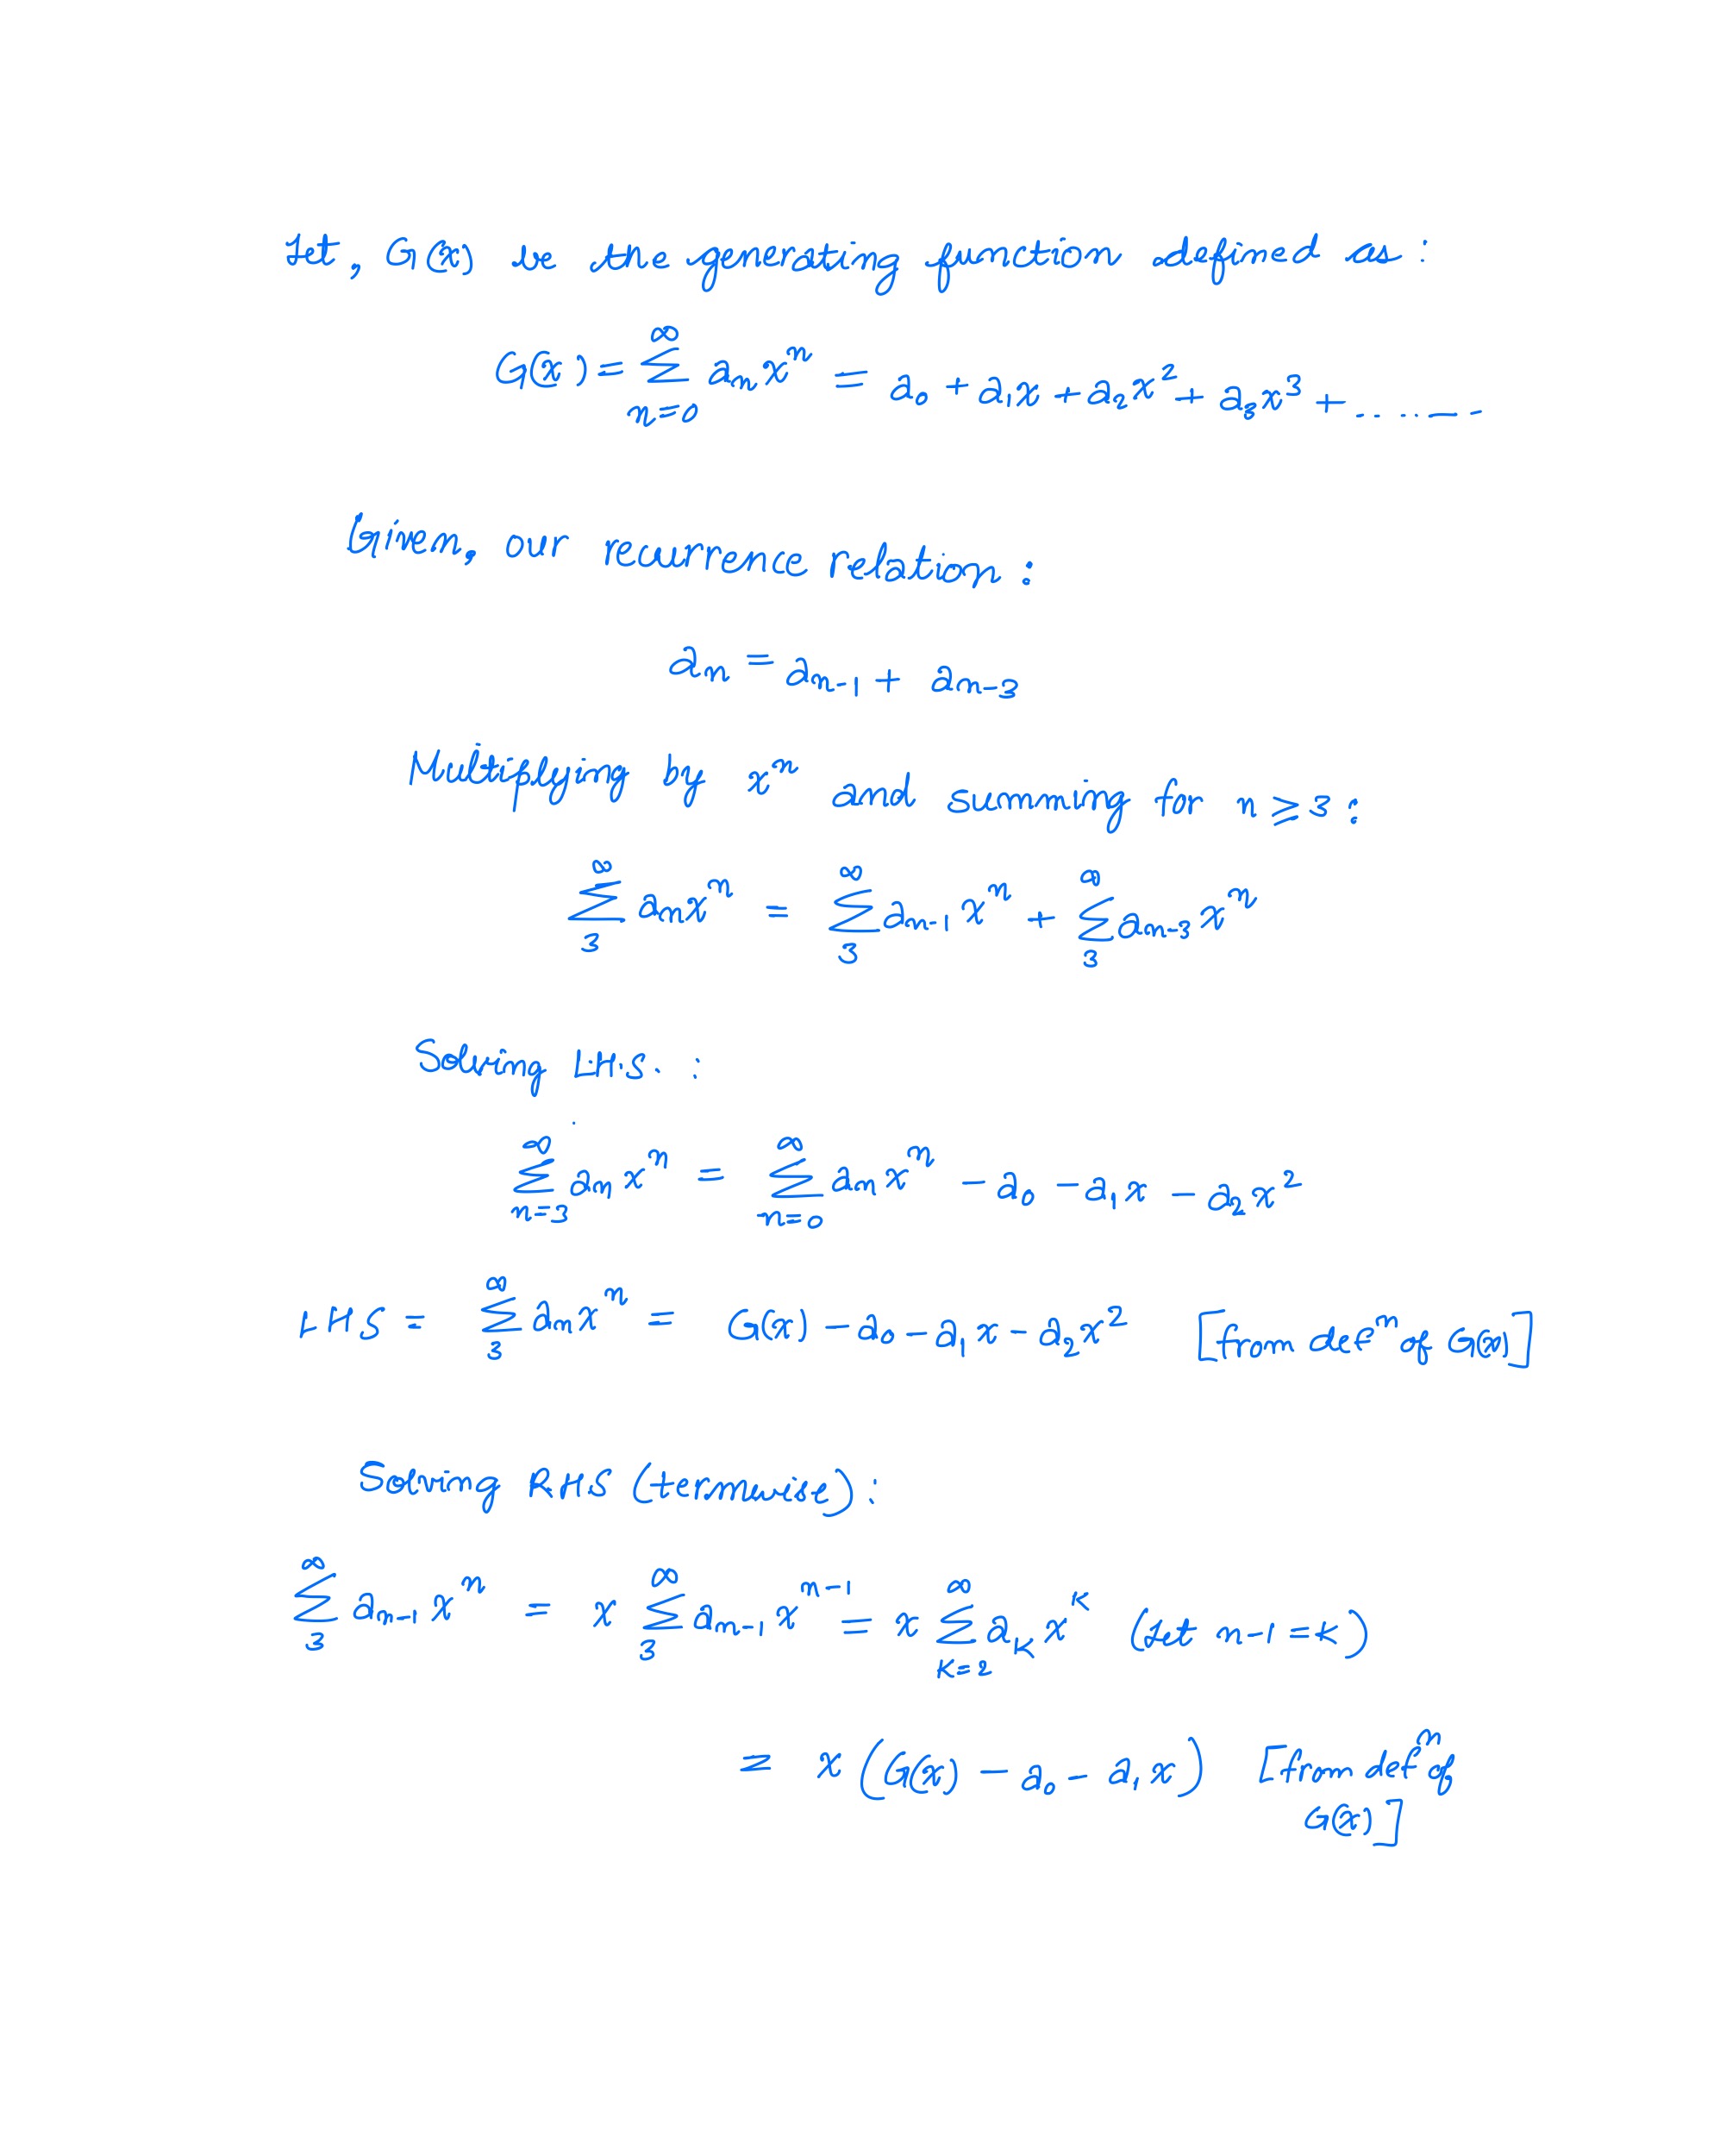 Let, G(x) be the generating function defined as:
G(x) = ∑_{n=0}^{∞} a_n x^n = a_0 + a_1 x + a_2 x^2 + a_3 x^3 + .......
Given, our recurrence relation:
a_n = a_{n-1} + a_{n-3}
Multiplying by x^n and summing for n ⩾ 3:
∑_{3}^{∞} a_n x^n = ∑_{3}^{∞} a_{n-1} x^n + ∑_{3}^{∞} a_{n-3} x^n
Solving L.H.S. :
∑_{n=3}^{∞} a_n x^n = ∑_{n=0}^{∞} a_n x^n - a_0 - a_1 x - a_2 x^2
LHS = ∑_{3}^{∞} a_n x^n = G(x) - a_0 - a_1 x - a_2 x^2 [from def^n of G(x)]
Solving RHS (termwise):
∑_{3}^{∞} a_{n-1} x^n = x ∑_{3}^{∞} a_{n-1} x^{n-1} = x ∑_{K=2}^{∞} a_K x^K (Let n-1 = K)
= x (G(x) - a_0 - a_1 x) [from def^n of
G(x)]